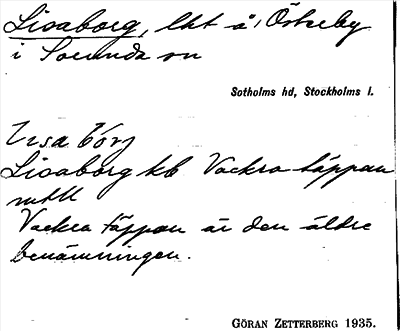 Lisaborg, lht å Östeby
i Sorunda sn
Sotholms hd, Stockholms l.
Lisaborg kb Vackra täppan
mtll
Vackra täppan är den äldre
benämningen.
GÖRAN ZETTERBERG 1935.